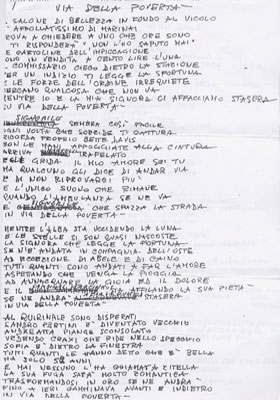 VIA DELLA POVERTA'
SALONE DI BELLEZZA IN FONDO AL VICOLO
AFFOLLATISSIMO DI MARINAI
PROVA A CHIEDERE A UNO CHE ORE SONO
TI RISPONDERA' "NON L'HO SAPUTO MAI"
E CARTOLINE DELL'IMPICCAGIONE
SONO IN VENDITA A CENTO LIRE L'UNA
COMMISSARIO CIECO DIETRO LA STAZIONE
PER UN INDIZIO TI LEGGE LA SFORTUNA
E LE FORZE DELL'ORDINE IRREQUIETE
CERCANO QUALCOSA CHE NON VA
MENTRE IO E LA MIA SIGNORA CI AFFACCIAMO STASERA
SU VIA DELLA POVERTA'
SEMBRA COSI' FACILE
OGNI VOLTA CHE SORRIDE TI CATTURA
RICORDA PROPRIO BETTE DAVIS
CON LE MANI APPOGGIATE ALLA CINTURA
ARRIVA TRAFELATO
E LE GRIDA IL MIO AMORE SEI TU
MA QUALCUNO GLI DICE DI ANDAR VIA
E DI NON RIPROVARCI PIU'
E L'UNICO SUONO CHE RIMANE
QUANDO L'AMBULANZA SE NE VA
E CHE SPAZZA LA STRADA
IN VIA DELLA POVERTA'
MENTRE L'ALBA STA UCCIDENDO LA LUNA
E LE STELLE SI SON QUASI NASCOSTE
LA SIGNORA CHE LEGGE LA FORTUNA
SE N'E' ANDATA IN COMPAGNIA DELL'OSTE
AD ECCEZIONE DI ABELE E DI CAINO
TUTTI QUANTI SONO ANDATI A FAR L'AMORE
ASPETTANDO CHE VENGA LA PIOGGIA
AD ANNACQUARE LA GIOIA ED IL DOLORE
E IL AFFILANDO LA SUA PIETA'
SE NE ANDRA' STASERA
IN VIA DELLA POVERTA'
AL QUIRINALE SONO DISPERATI
SANDRO PERTINI E' DIVENTATO VECCHIO
ANDREATTA PIANGE SCONSOLATO
VEDENDO CRAXI CHE RIDE NELLO SPECCHIO
SOFIA E' DIETRO LA FINESTRA
TUTTI QUANTI LE HANNO DETTO CHE E' BELLA
HA SOLO ANNI
E MAI NESSUNO L'HA CHIAMATA ZITELLA
LA SUA FUGA SARA' MOLTO ROMANTICA
TRASFORMANDOSI IN ORO SE NE ANDRA'
FINO A IERI CAMMINAVA AVANTI E INDIETRO
IN VIA DELLA POVERTA'